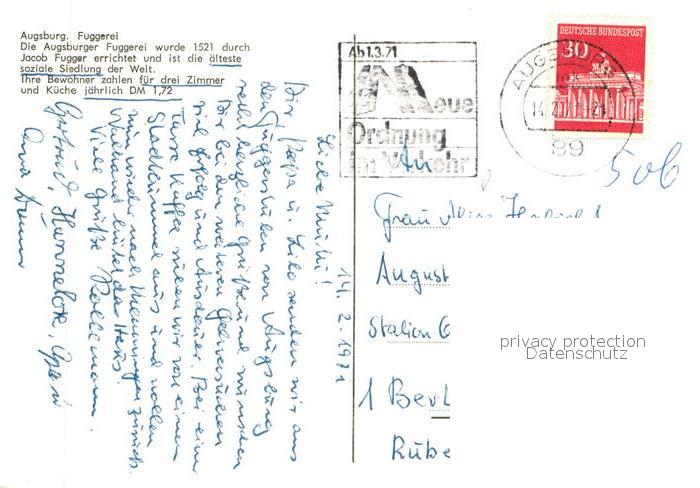 Augsburg. Fuggerei
Die Augsburger Fuggerei wurde 1521 durch
Jacob Fugger errichtet und ist die älteste
soziale Siedlung der Welt.
Ihre Bewohner zahlen für drei Zimmer
und Küche jährlich DM 1,72
Ab 1.3.71
Neue
Ordnung
im Verkehr
DEUTSCHE BUNDESPOST
30
AUGSBURG
89
506
An
Frau
August
Station
1 Berl
Rübe
privacy protection
Datenschutz
14. 2. 1971
Liebe Mutti!
Dir, Papa u. senden wir aus
den Fuggerstuben von Augsburg
recht herzliche Grüße und wünschen
Dir bei den weiteren
viel Erfolg und Ausdauer. Bei einer
Tasse Kaffee ruhen wir von einem
Stadtbummel aus und wollen
nun wieder nach Memmingen zurück.
Viele Grüße
Gertrud, Hannelore,